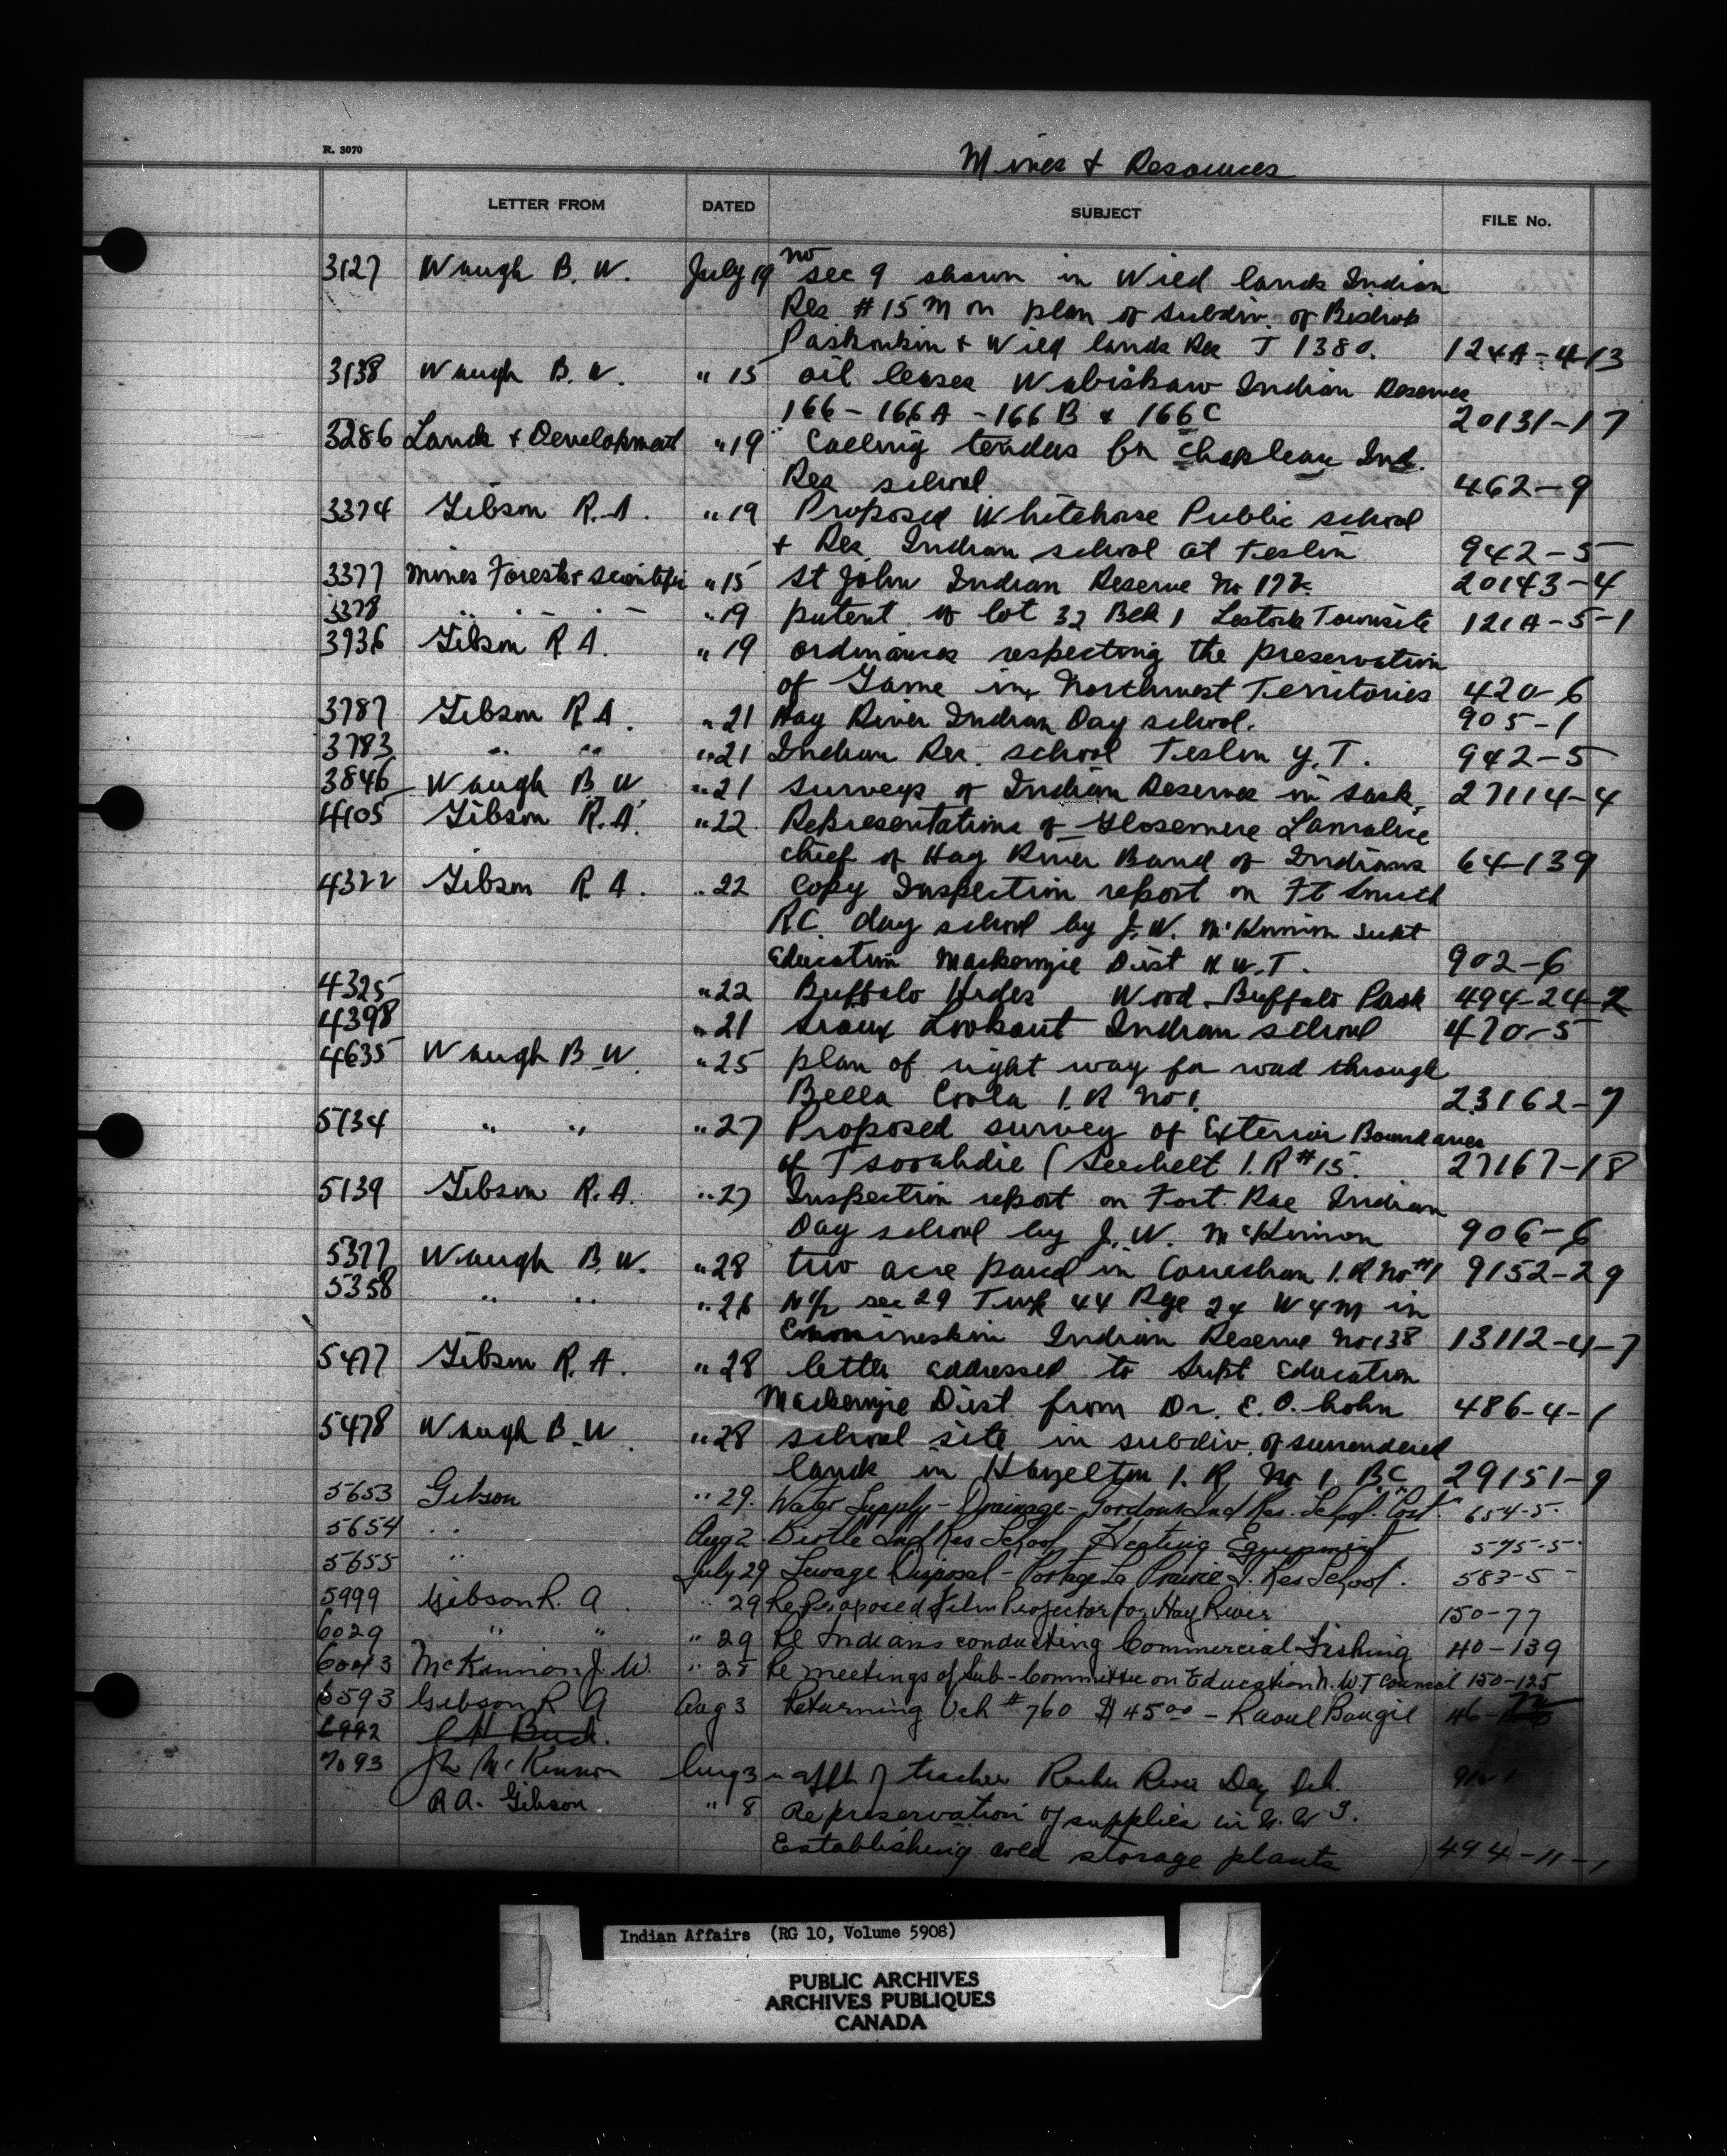 R. 3070
Mines & Resources
LETTER FROM DATED SUBJECT FILE No.
3127 Waugh B. W. July 19 no sec 9 shown in Wild lands Indian
Res # 15 M on plan of subdiv. of
& Wild lands Res T 1380. 124A-4-13
3138 Waugh B. W. " 15 oil leases Wabiskaw Indian Reserves
166 - 166A - 166B & 166C 20131-17
3286 Lands & Development " 19 Calling tenders for Chapleau Ind.
Res school 462-9
3374 Gibson R. A. " 19 Proposed Whitehorse Public school
& Res Indian school at Teslin 942-5
3377 Mines Forests & Scientific " 15 St John Indian Reserve No 20143-4
3378 " " - " - " 19 patent of lot 32 Blk 1 Lestock Townsite 121A-5-1
3736 Gibson R A. " 19 ordinances respecting the preservation
of Game in Northwest Territories 420-6
3787 Gibson R A. " 21 Hay River Indian Day school. 905-1
3783 " " " 21 Indian Res. school Teslin Y. T. 942-5
3846 Waugh B W " 21 surveys of Indian Reserves in Sask. 27114-4
4105 Gibson R. A. " 22 Representations of Lamalice
chief of Hay River Band of Indians 64-139
4322 Gibson R A. " 22 Copy Inspection report on Ft Smith
R.C. day school by J. W. McKinnon Supt
Education Mackenzie Dist N.W.T. 902-6
4325 " 22 Buffalo Hides Wood Buffalo Park 494-24-2
4398 " 21 Sioux Lookout Indian school 470-5
4635 Waugh B. W. " 25 plan of right way for road through
Bella Coola I. R No 1. 23162-7
5134 " " " 27 Proposed survey of Exterior Boundaries
of Tsooahdie (Seechelt I. R #15. 27167-18
5139 Gibson R. A. " 27 Inspection report on Fort Rae Indian
Day school by J. W. McKinnon 906-6
5377 Waugh B. W. " 28 two acre parcel in Cowichan I. R No #1 9152-29
5358 " " " 26 N½ sec 29 Twp 44 Rge 24 W4M in
Ermineskin Indian Reserve No 138 13112-4-7
5477 Gibson R. A. " 28 letter addressed to Supt Education
Mackenzie Dist from Dr. E. O. 486-4-1
5478 Waugh B. W. " 28 school site in subdiv. of surrendered
lands in Hazelton I. R No 1 B.C. 29151-9
5653 Gibson " 29. Water Supply - Drainage - Gordons Ind Res. School. 654-5-
5654 " " Aug 2. Birtle Ind Res School Heating Equipment 575-5-
5655 " July 29 Sewage Disposal - Portage La Prairie I. Res School. 583-5-
5999 Gibson R. A. " 29 Re Proposed Film Projector for Hay River 150-77
6029 " " " 29 Re Indians conducting Commercial Fishing 40-139
6043 McKinnon J. W. " 28 Re meetings of Sub-Committee on Education N.W.T Council 150-125
6593 Gibson R A Aug 3 Returning Vch # 760 $45.00 - Raoul 46-
6992
7093 McKinnon Aug 3 re appt of teacher Rocher River Day Sch.
R A. Gibson " 8 Re preservation of supplies in N. W T.
Establishing cold storage plants 494-11-1
Indian Affairs (RG 10, Volume 5908)
PUBLIC ARCHIVES
ARCHIVES PUBLIQUES
CANADA